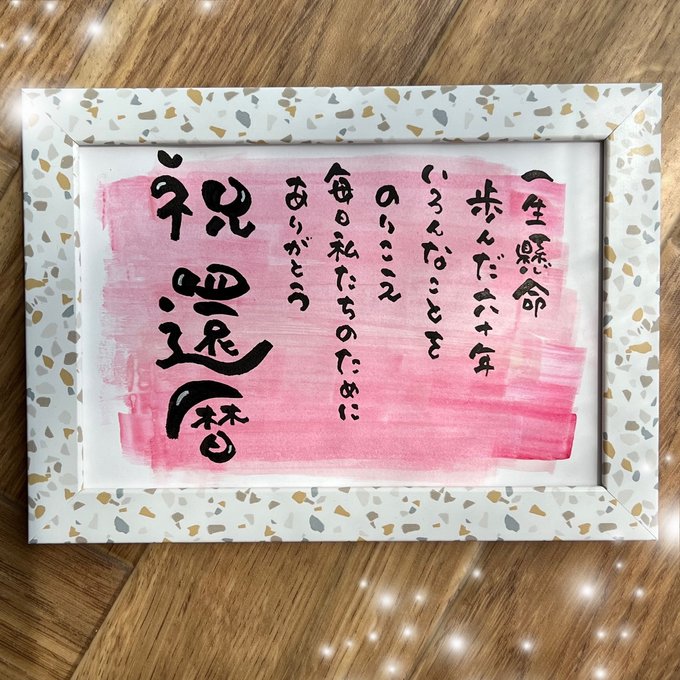 一生懸命
歩んだ六十年
いろんなことを
のりこえ
毎日私たちのために
ありがとう
祝還暦